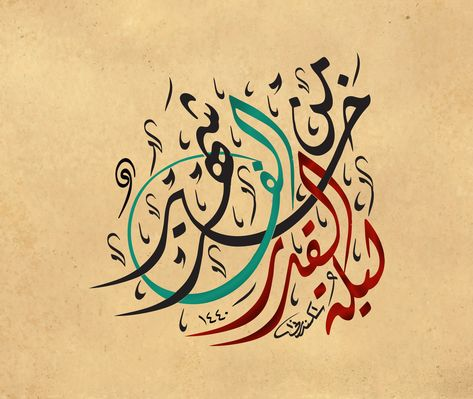 ليلة القدر
خير من ألف شهر
١٤٤٠